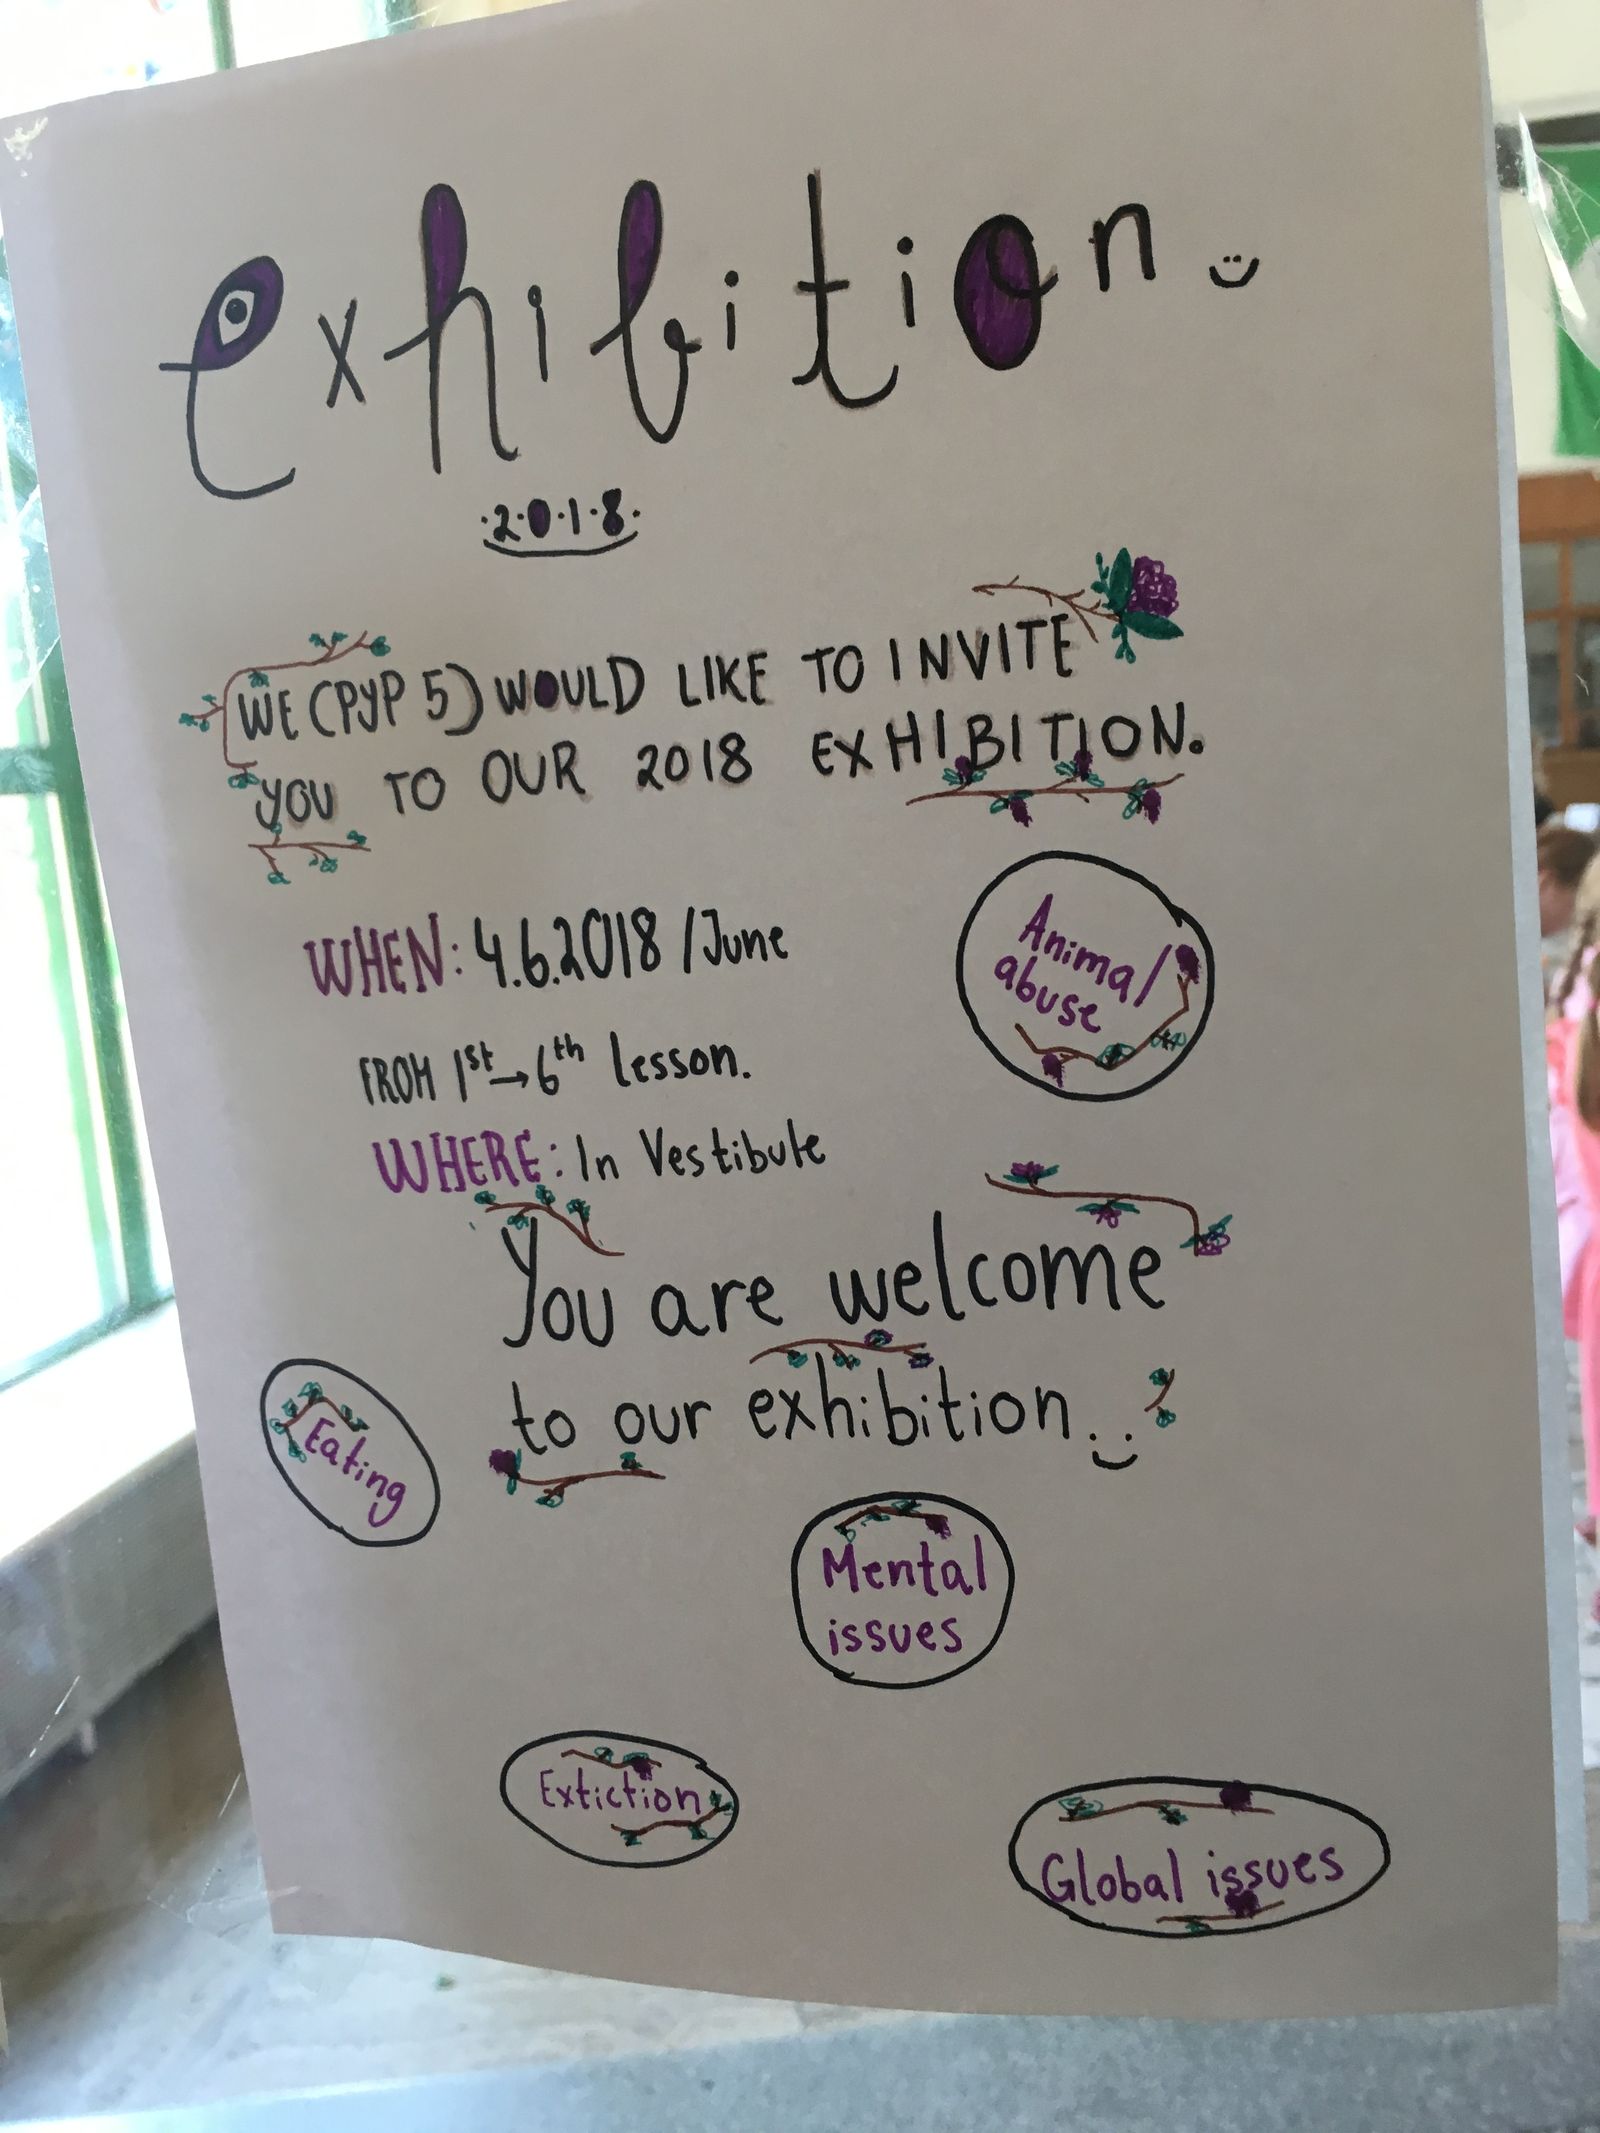 Exhibition
·2·0·1·8·
WE (PYP 5) WOULD LIKE TO INVITE
YOU TO OUR 2018 EXHIBITION.
WHEN: 4.6.2018 /June
Animal
abuse
FROM 1st→6th lesson.
WHERE: In Vestibule
You are welcome
to our exhibition.
Eating
Mental
issues
Extiction
Global issues